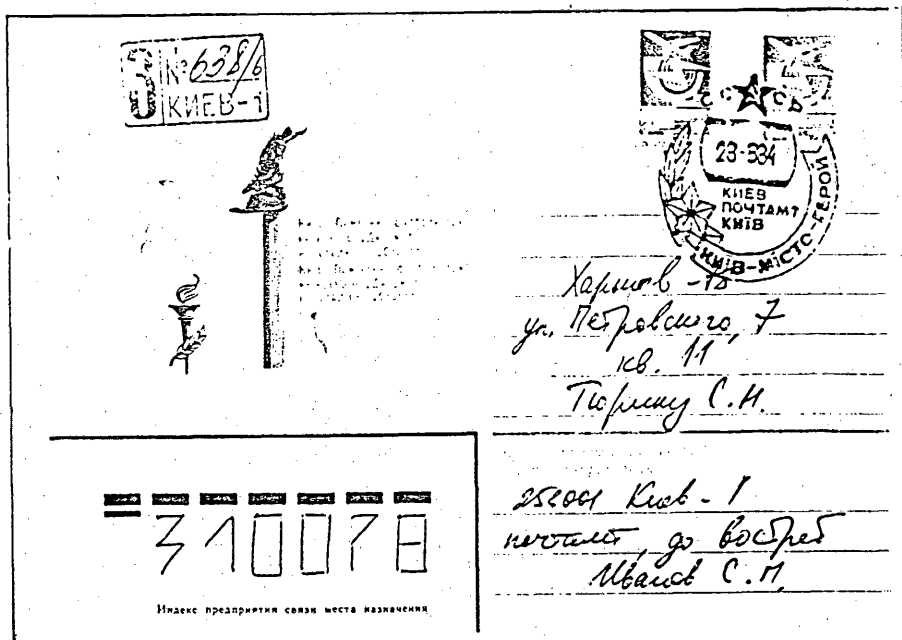 З
№ 638/б
КИЕВ-1
СССР
23-634
КИЕВ
ПОЧТАМТ
КИЇВ
КИЇВ-МІСТО-ГЕРОЙ
Харьков -78
ул. Петровского, 7
кв. 11
Тюрину С.Н.
252001 Киев - 1
почтамт, до востреб
Иванов С.П.
310078
Индекс предприятия связи места назначения